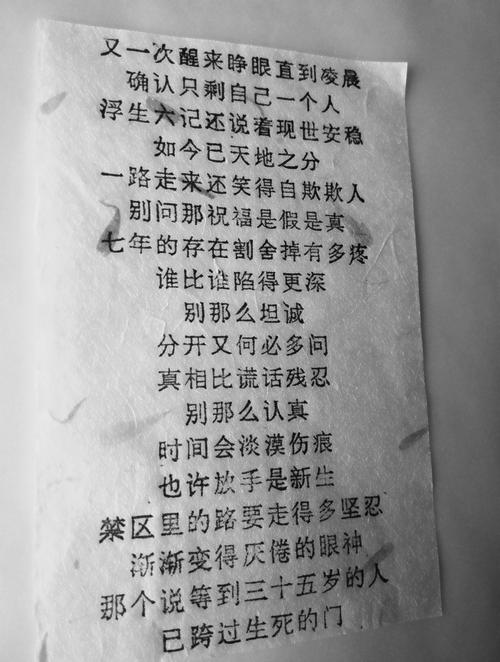 又一次醒来睁眼直到凌晨
确认只剩自己一个人
浮生六记还说着现世安稳
如今已天地之分
一路走来还笑得自欺欺人
别问那祝福是假是真
七年的存在割舍掉有多疼
谁比谁陷得更深
别那么坦诚
分开又何必多问
真相比谎话残忍
别那么认真
时间会淡漠伤痕
也许放手是新生
禁区里的路要走得多坚忍
渐渐变得厌倦的眼神
那个说等到三十五岁的人
已跨过生死的门